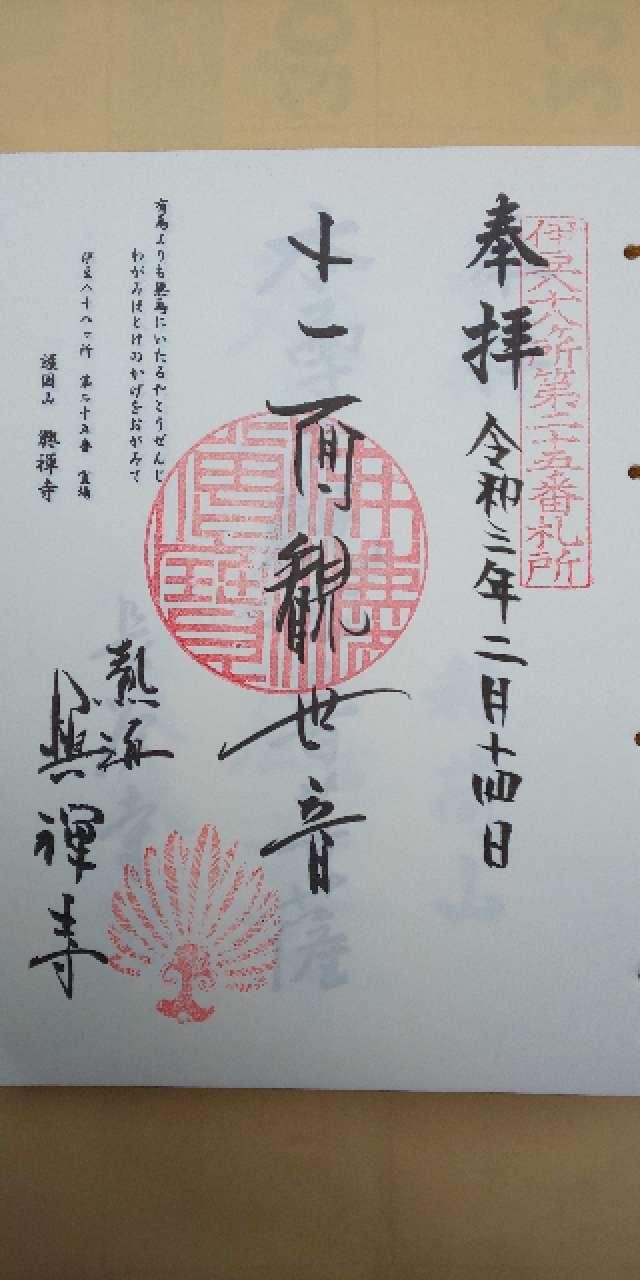 伊豆八十八ヶ所第二十五番札所
奉拝 令和三年二月十四日
十一面観世音
有馬よりも熱馬にいたるやとうぜんじ
わがみほとけのかげをおがみて
伊豆八十八ヶ所 第二十五番 霊場
護国山 興禅寺
熱海
興禅寺